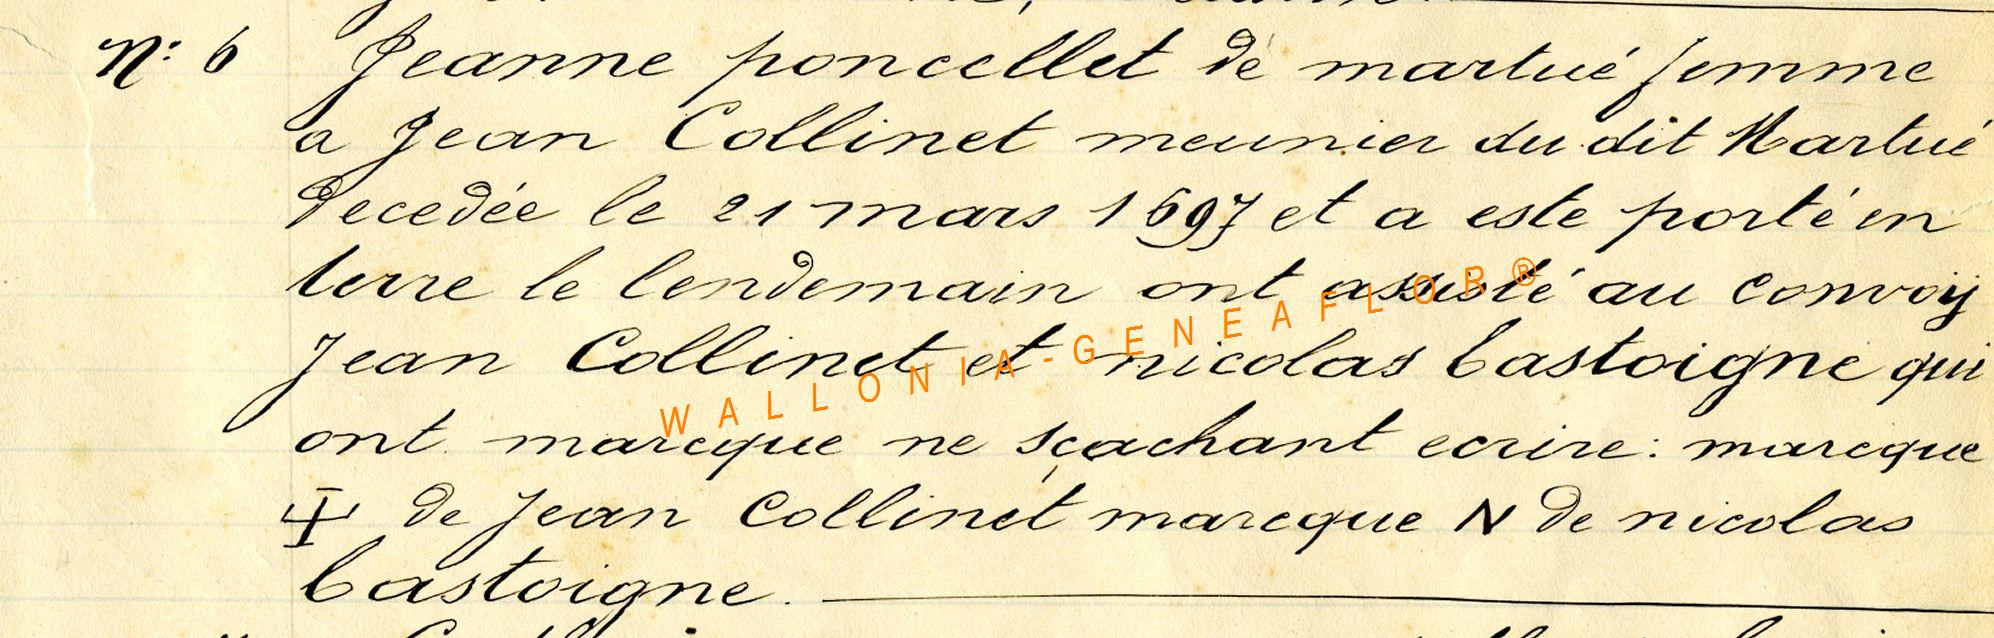 N: 6 Jeanne poncellet de martué femme
a Jean Collinet meunier du dit Martué
decedée le 21 mars 1697 et a este porté en
terre le lendemain ont assisté au convoÿ
Jean Collinet et nicolas bastoigne qui
ont marcque ne sçachant ecrire: marcque
de Jean Collinet marcque N de nicolas
bastoigne.
WALLONIA-GENEAFLOR®